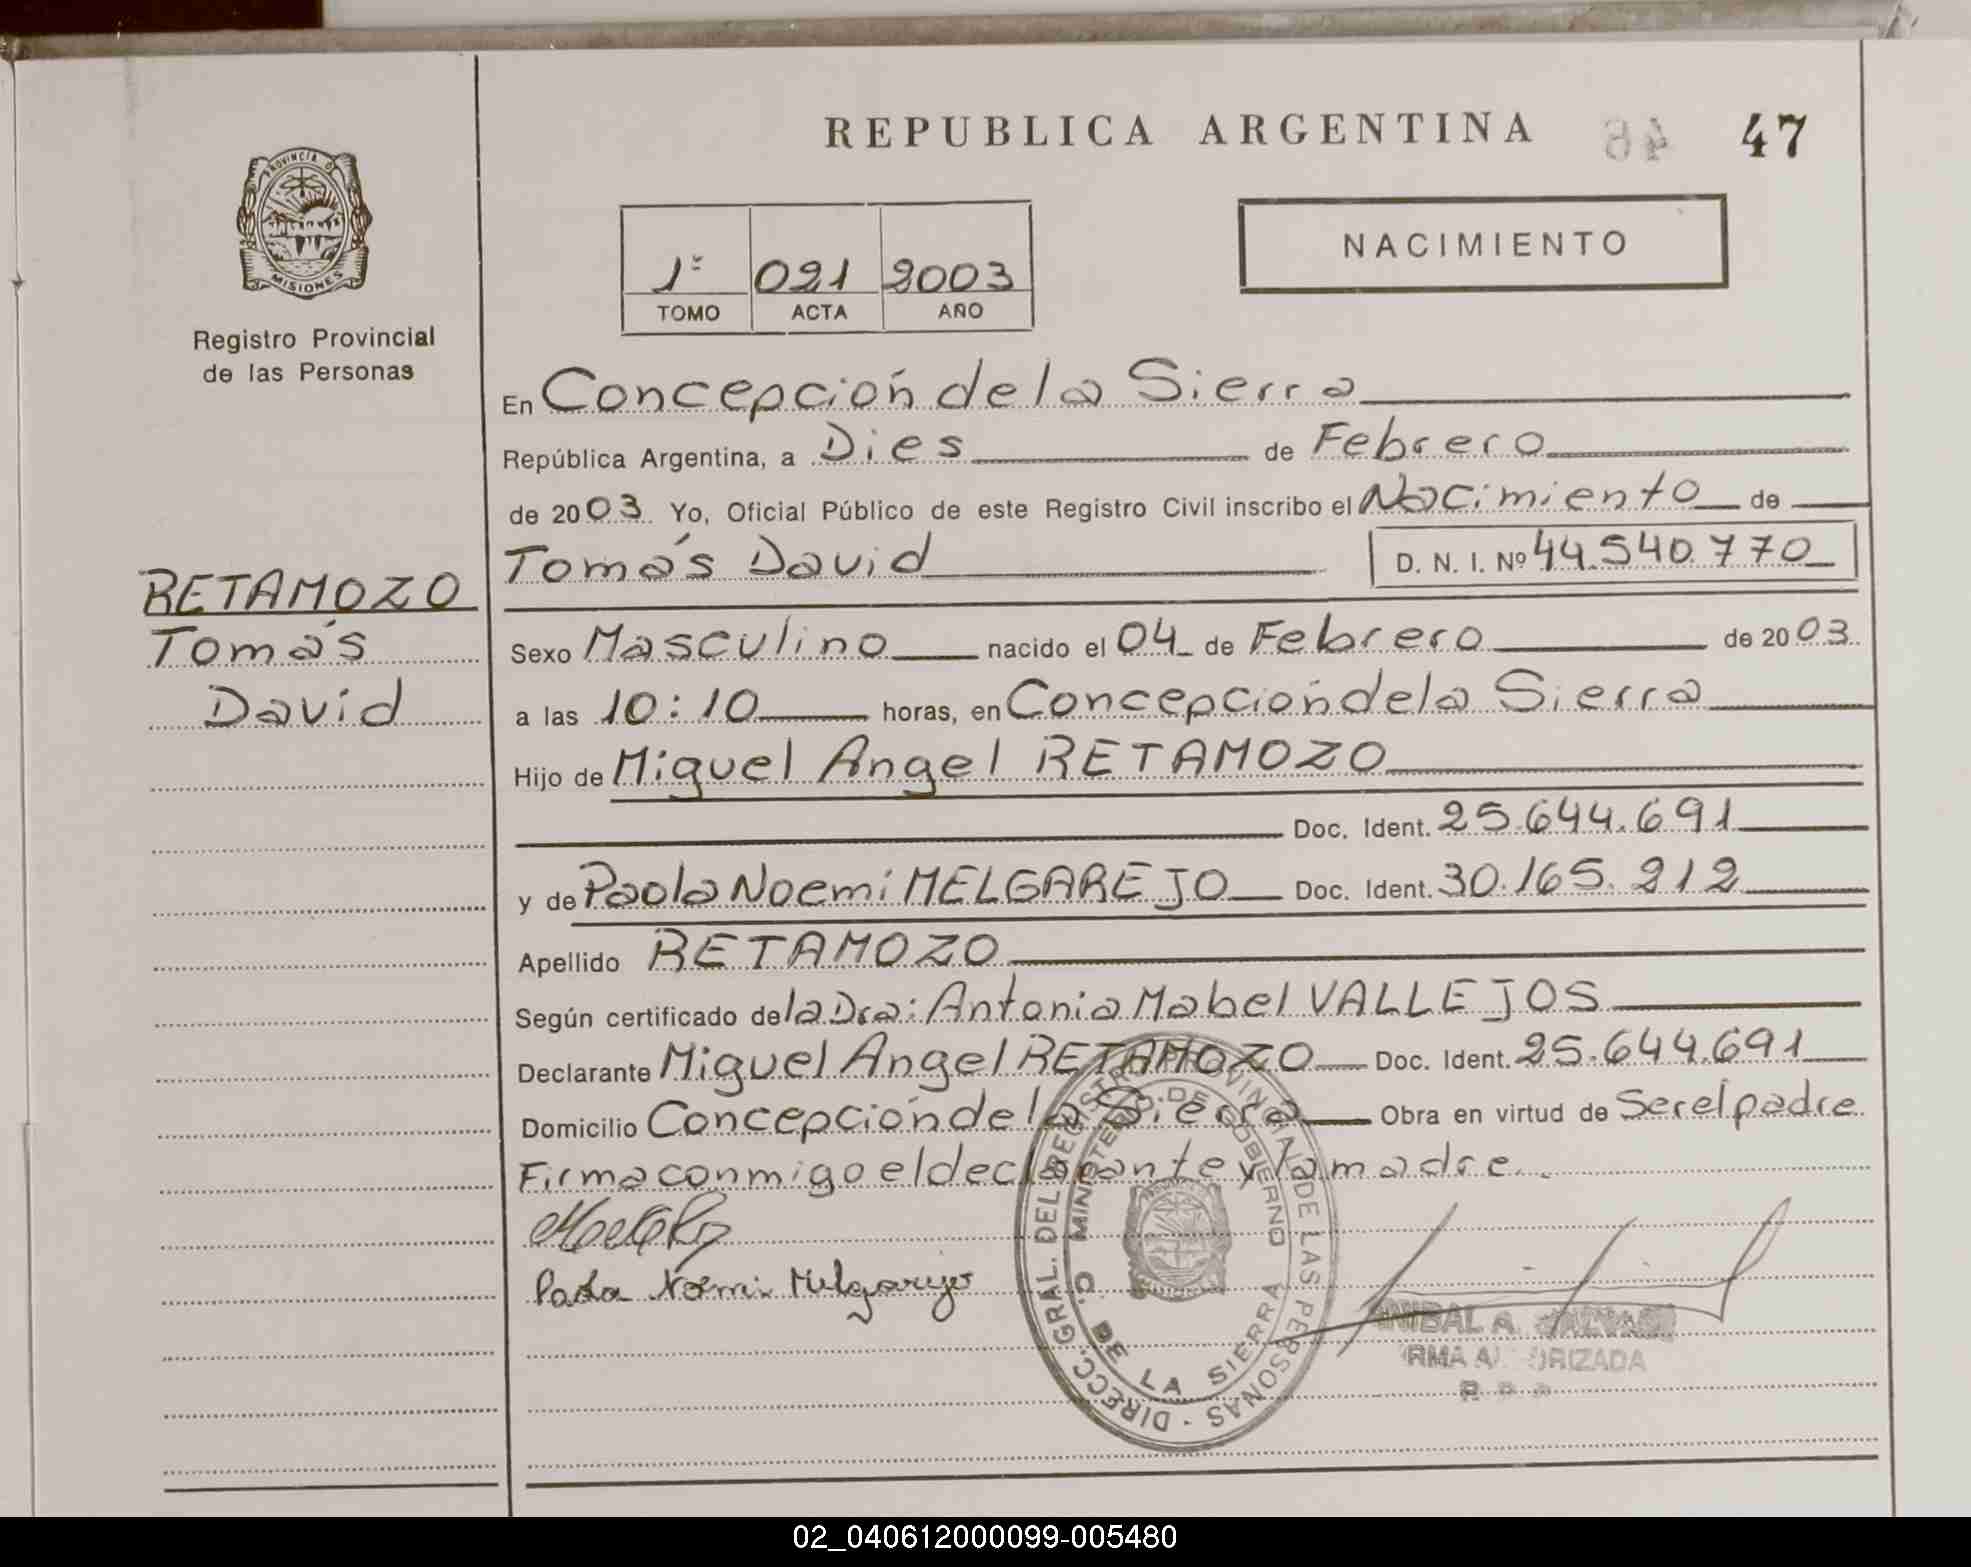 REPUBLICA ARGENTINA 46 47
PROVINCIA DE MISIONES
Registro Provincial
de las Personas
NACIMIENTO
1º 021 2003
TOMO ACTA AÑO
En Concepción de la Sierra
República Argentina, a Dies de Febrero
de 2003. Yo, Oficial Público de este Registro Civil inscribo el Nacimiento de
Tomás David D. N. I. Nº 44.540.770
RETAMOZO
Tomás
David
Sexo Masculino nacido el 04 de Febrero de 2003.
a las 10:10 horas, en Concepción de la Sierra
Hijo de Miguel Angel RETAMOZO
Doc. Ident. 25.644.691
y de Paola Noemi MELGAREJO Doc. Ident. 30.165.212
Apellido RETAMOZO
Según certificado de la Dra: Antonia Mabel VALLEJOS
Declarante Miguel Angel RETAMOZO Doc. Ident. 25.644.691
Domicilio Concepción de la Sierra Obra en virtud de Ser el padre.
Firma conmigo el declarante y la madre.
Paola Noemi Melgarejo
DIRECC. GRAL. DEL REGISTRO PROVINCIAL DE LAS PERSONAS
MINISTERIO DE GOBIERNO
C. DE LA SIERRA
NIBAL A.
02_040612000099-005480